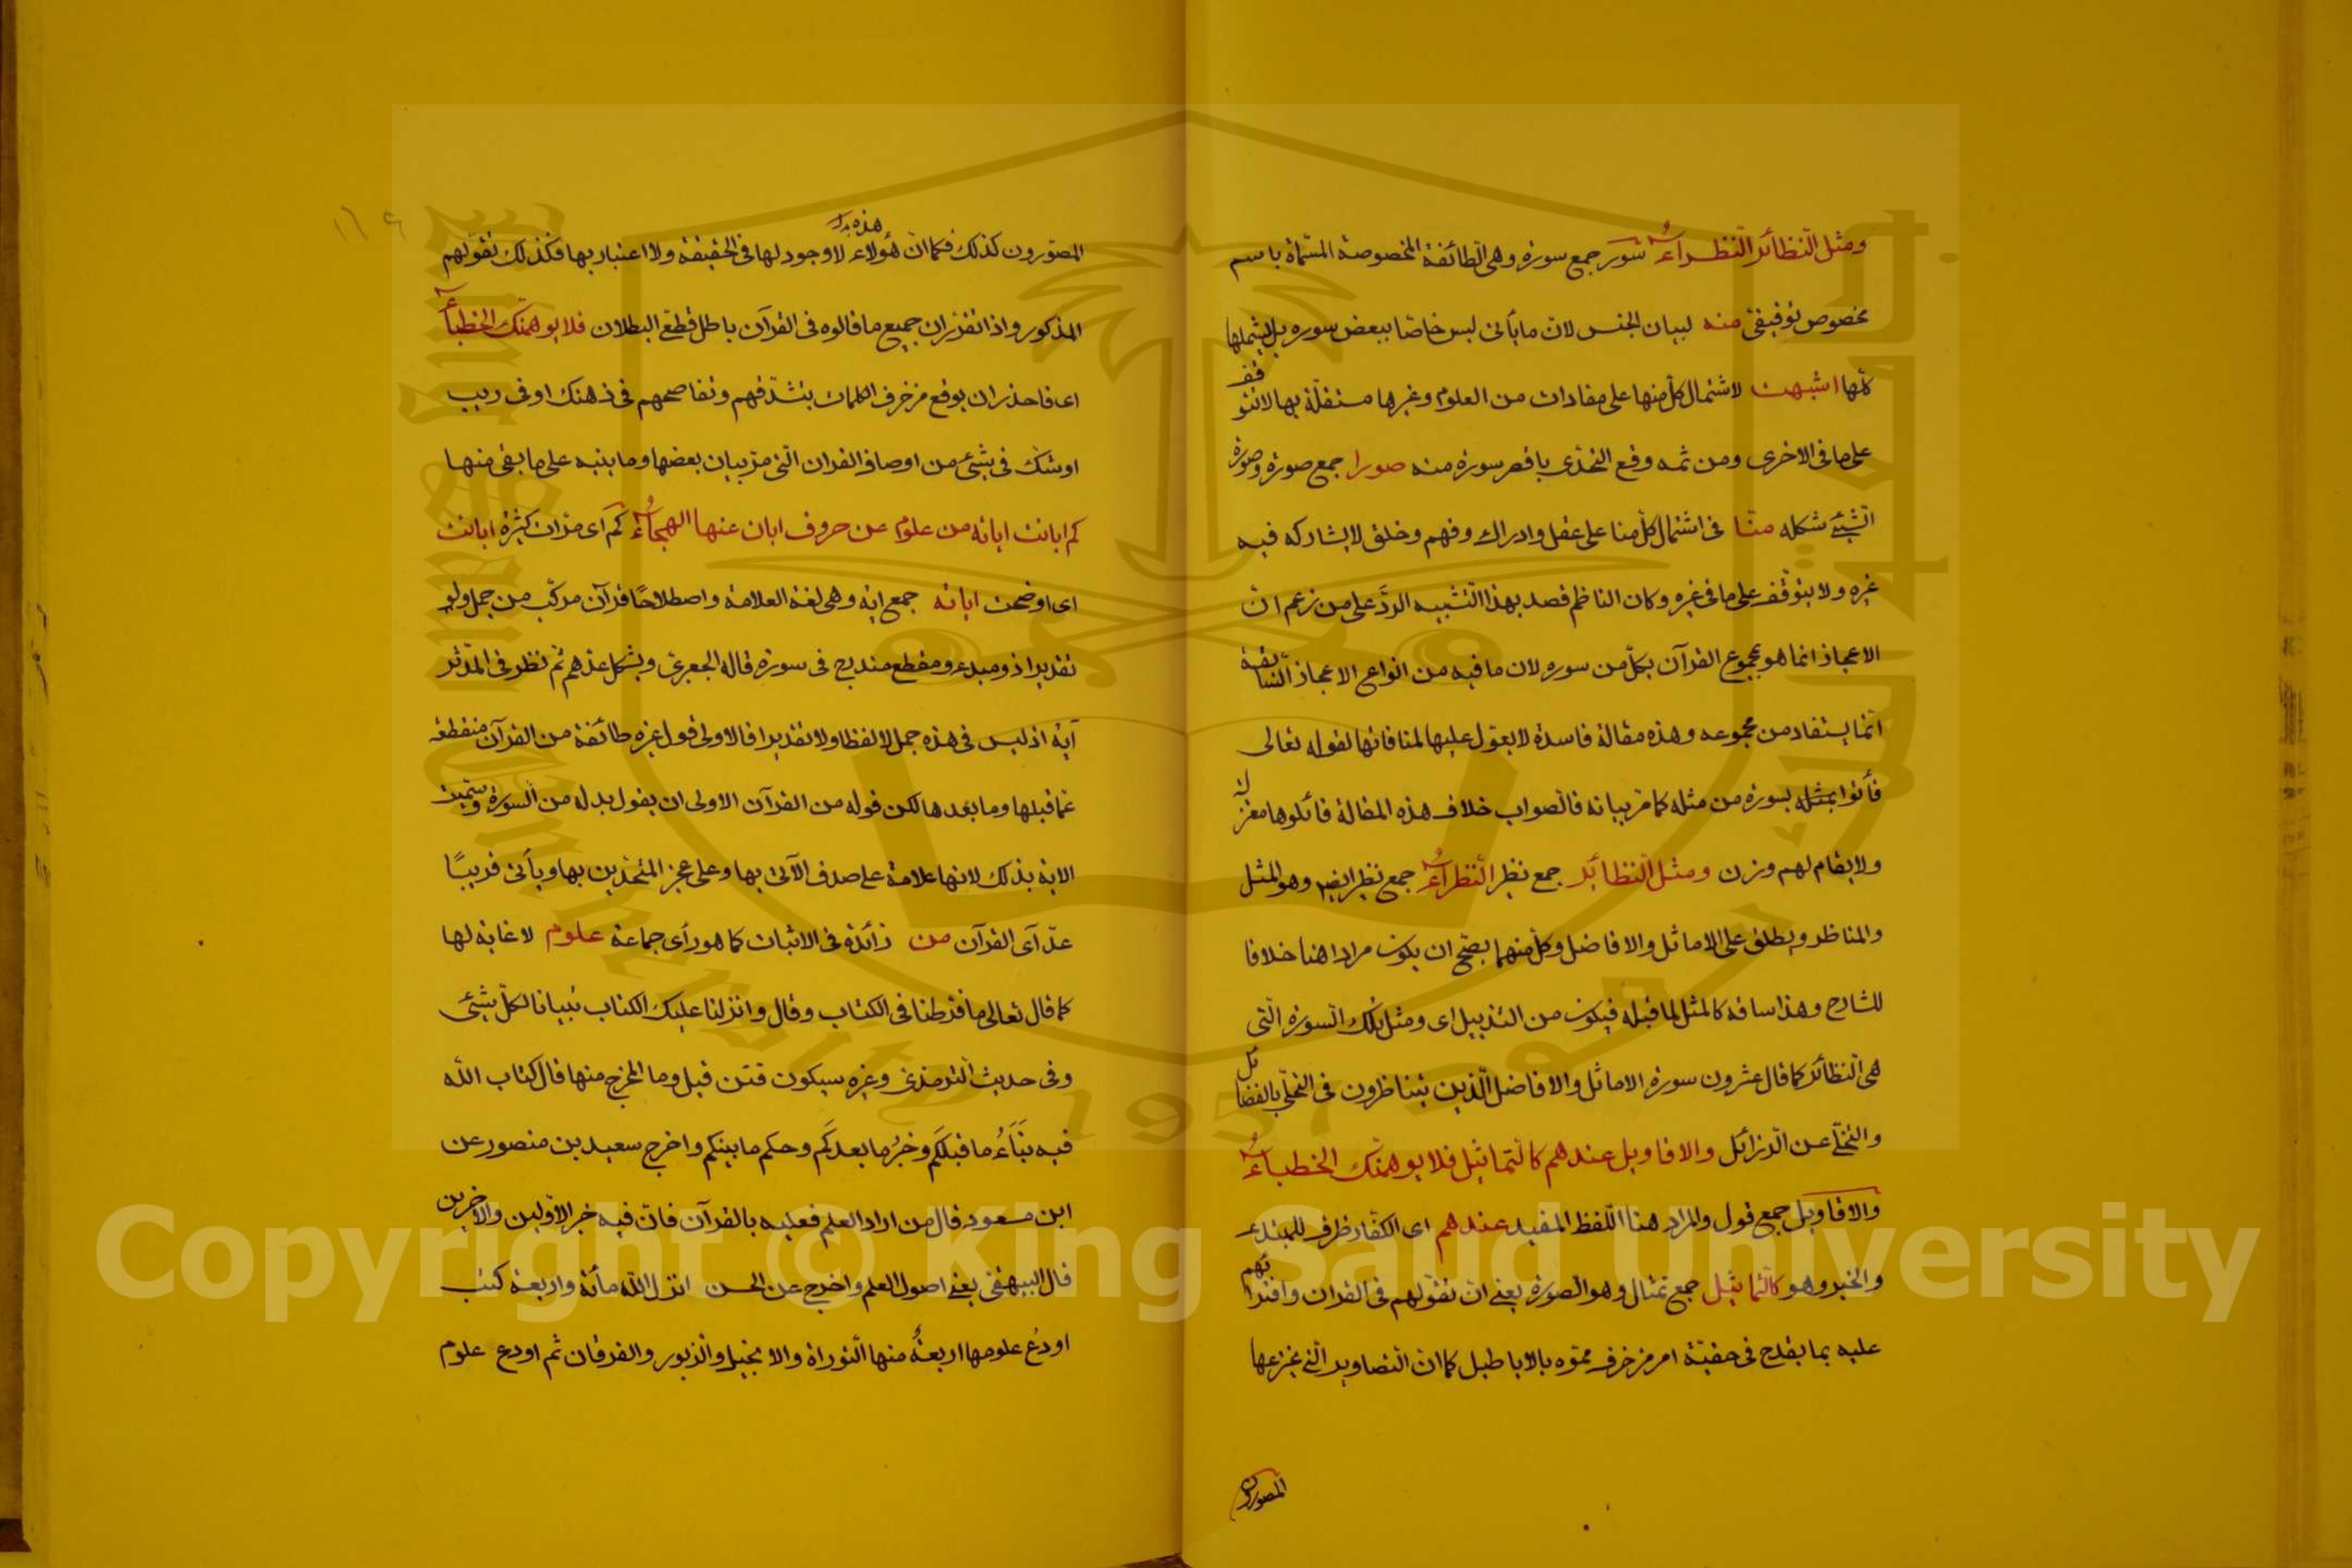 ومثل النظائر النظراء سور جمع سورة وهى الطائفة المخصوصة المسماة باسم
مخصوص توقيفى منه لبيان الجنس لان ما يأتى ليس خاصا ببعض سوره بل يشملها
كلها اشبهت لاشتمال كل منها على مفادات من العلوم وغيرها مستقلة بها لا تتوقف
على ما فى الاخرى ومن ثمه وقع التحدى باقصر سورة منه صورا جمع صورة وصورة
الشيئ شكله منا فى اشتمال كل منا على عقل وادراك وفهم وخلق لا يشاركه فيه
غيره ولا يتوقف على ما فى غيره وكان الناظم قصد بهذا التشبيه الرد على من زعم ان
الاعجاز انما هو بمجموع القرآن بكل من سوره لان ما فيه من انواع الاعجاز السابقة
انما يستفاد من مجموعه وهذه مقالة فاسدة لا يعول عليها لمنافاتها لقوله تعالى
فأتوا بمثله بسورة من مثله كما مر بيانه فالصواب خلاف هذه المقالة فائلوها معزلا
ولا يقام لهم وزن ومثل النظائر جمع نظير النظراء جمع نظير ايضا وهو المثل
والمناظر ويطلق على الاماثل والافاضل وكل منهما يصح ان يكون مرادا هنا خلافا
للشارح وهذا ساقه كالمثل لما قبله فيكون من التذييل اى ومثل تلك السورة التى
هى النظائر كما قال عشرون سورة الاماثل والافاضل الذين يتناظرون فى التحلى بالفضائل
والتخلى عن الرذائل والاقاويل عندهم كالتماثيل فلا يوهمنك الخطباء
والاقاويل جمع قول والمراد هنا اللفظ المفيد عندهم اى الكفار ظرف للمبتدء
والخبر وهو كالتماثيل جمع تمثال وهو الصورة يعنى ان تقولهم فى القران وافترائهم
عليه بما يقدح فى حقيته امر مزخرف مموه بالاباطيل كما ان التصاوير التى يخترعها
المصورون
المصورون كذلك فكما ان هؤلاء هذه لا وجود لها فى الحقيقة ولا اعتبار بها فكذلك تقولهم
المذكور واذا تقرر ان جميع ما قالوه فى القرآن باطل قطعى البطلان فلا يوهمنك الخطباء
اى فاحذر ان يوقع مزخرف الكلمات بتشدقهم وتفاصحهم فى ذهنك اوفى ريب
او شك فى شيئ من اوصاف القران التى مر بيان بعضها وما ينبه على ما بقى منها
كم ابانت اياته من علوم عن حروف ابان عنها الهجاء كم اى مرات كثيرة ابانت
اى اوضحت اياته جمع اية وهى لغة العلامة واصطلاحا قرآن مركب من جمل ولو
تقديرا ذو مبدء ومقطع مندرج فى سورة قاله الجعبرى ويشكل عدهم ثم نظر فى المدثر
آية اذ ليس فى هذه جمل لا لفظا ولا تقديرا فالاولى قول غيره طائفة من القرآن منقطعة
عما قبلها وما بعدها لكن قوله من القرآن الاولى ان يقول بدله من السورة وسميت
الاية بذلك لانها علامة على صدق الآتى بها وعلى عجز المتحدين بها ويأتى قريبًا
عد آى القرآن من زائدة فى الاثبات كما هو رأى جماعة علوم لا غاية لها
كما قال تعالى ما فرطنا فى الكتاب وقال وانزلنا عليك الكتاب تبيانا لكل شيئ
وفى حديث الترمذى وغيره سيكون فتن قيل وما المخرج منها قال كتاب الله
فيه نَبَاءُ ما قبلكم وخبرُ ما بعدكم وحكم ما بينكم واخرج سعيد بن منصور عن
ابن مسعود قال من اراد العلم فعليه بالقرآن فان فيه خبر الاولين والاخرين
قال البيهقى يعنى اصول العلم واخرج عن الحسن انزل الله مائة واربعة كتب
اودع علومها اربعةً منها التوراة والانجيل والزبور والفرقان ثم اودع علوم
Copyright © King Saud University
King Saud University
1957